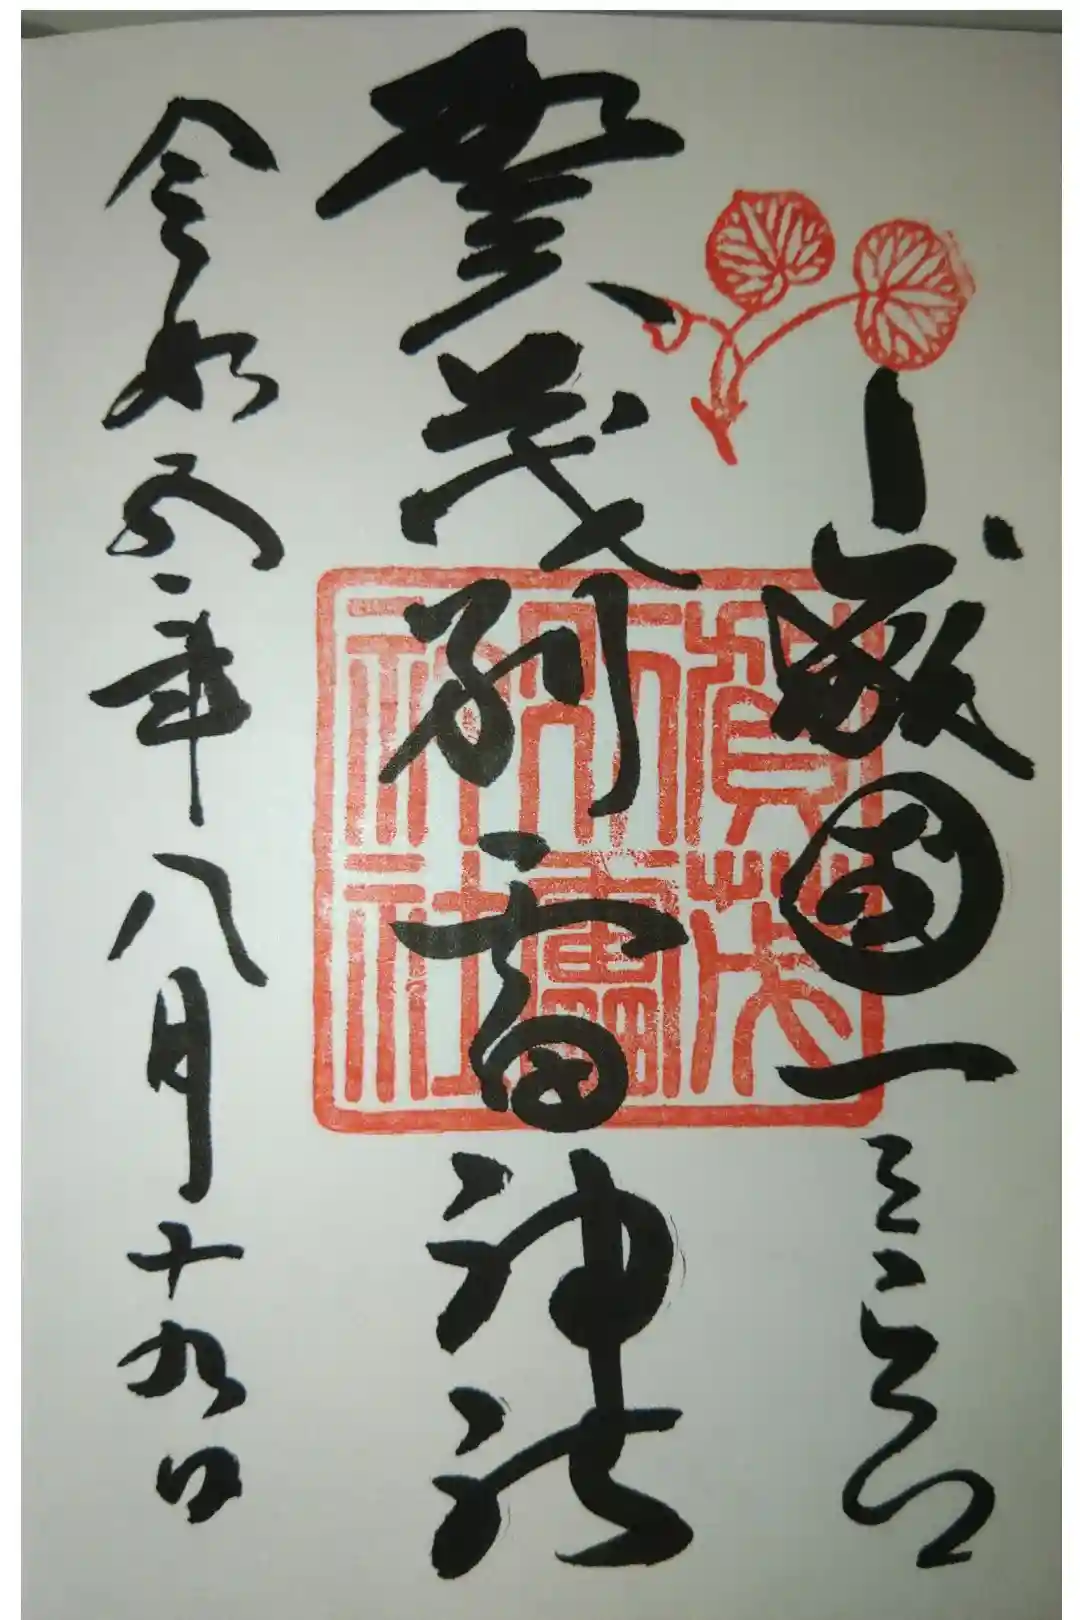 山城国一之宮
賀茂別雷神社
令和五年八月十九日
賀茂
別雷
神社